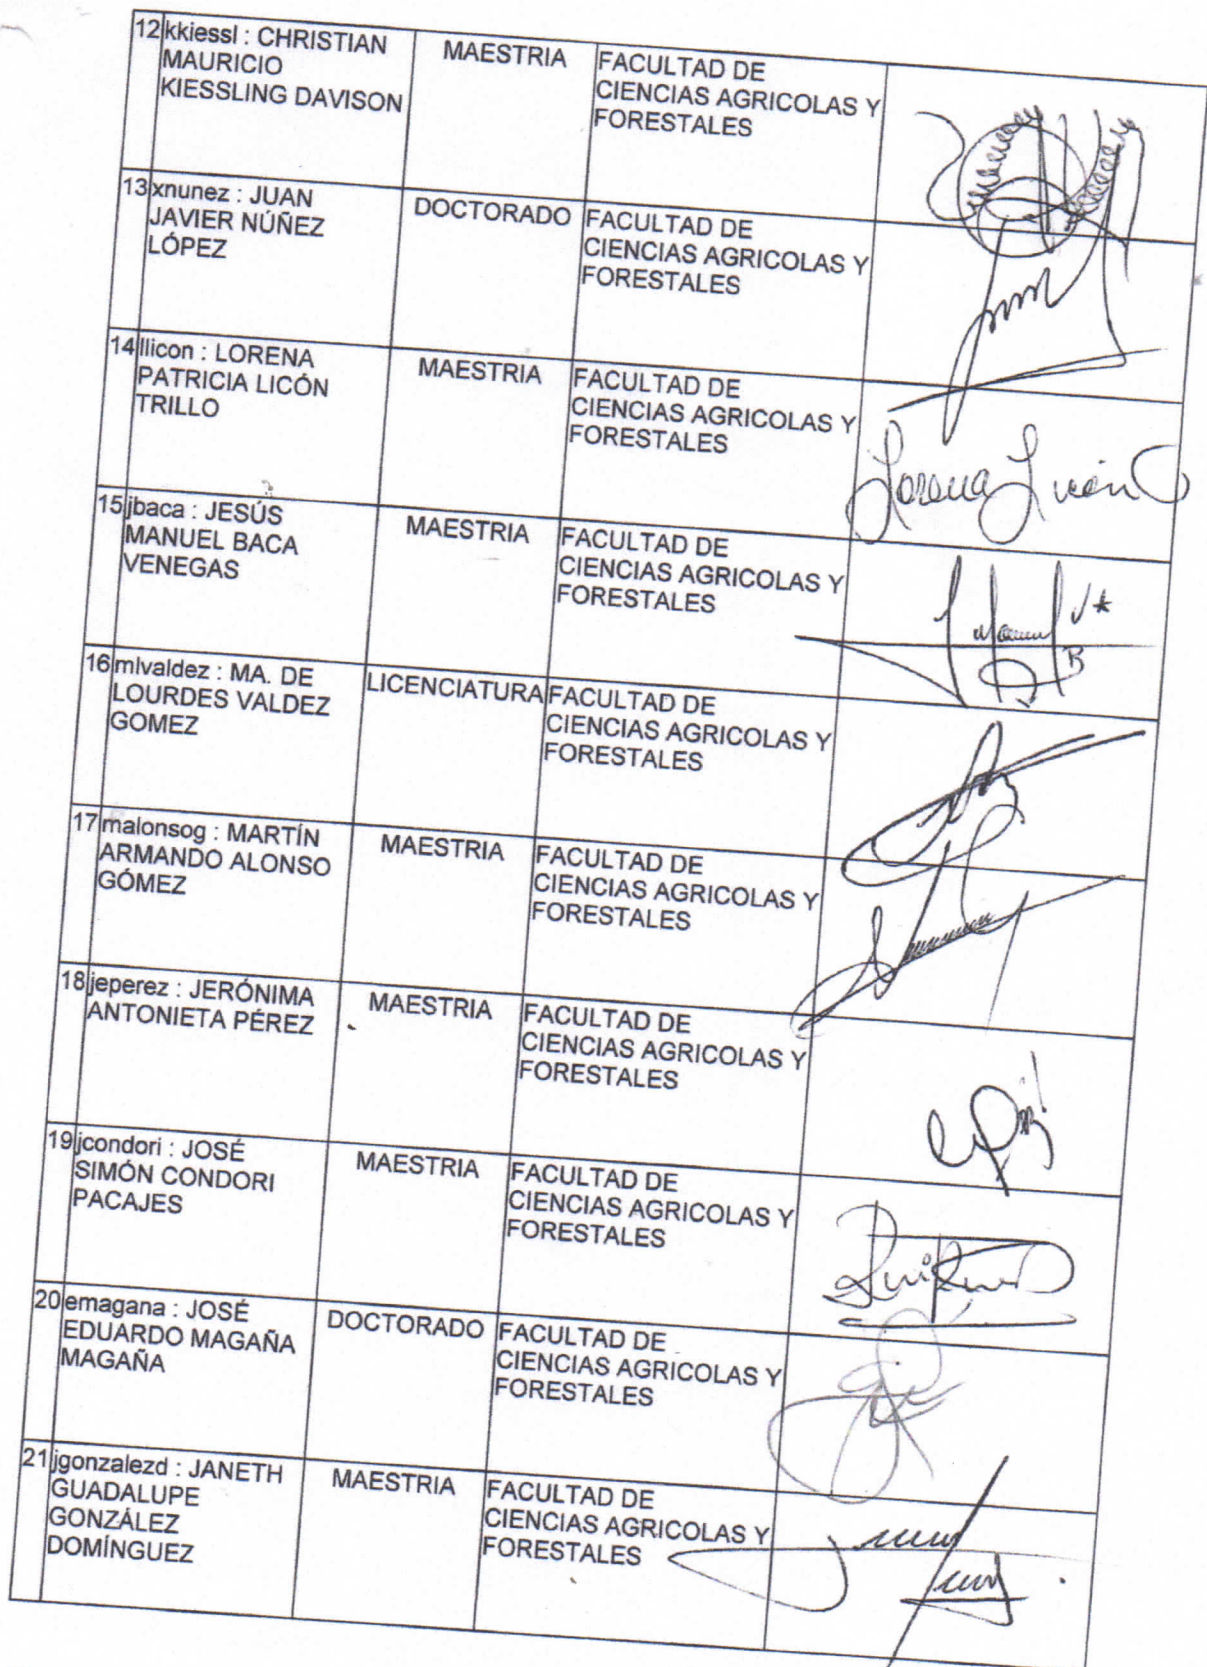 12 kkiessl : CHRISTIAN
MAURICIO
KIESSLING DAVISON
MAESTRIA
FACULTAD DE
CIENCIAS AGRICOLAS Y
FORESTALES
13 xnunez : JUAN
JAVIER NÚÑEZ
LÓPEZ
DOCTORADO
FACULTAD DE
CIENCIAS AGRICOLAS Y
FORESTALES
14 llicon : LORENA
PATRICIA LICÓN
TRILLO
MAESTRIA
FACULTAD DE
CIENCIAS AGRICOLAS Y
FORESTALES
Lorena Licón
15 jbaca : JESÚS
MANUEL BACA
VENEGAS
MAESTRIA
FACULTAD DE
CIENCIAS AGRICOLAS Y
FORESTALES
16 mlvaldez : MA. DE
LOURDES VALDEZ
GOMEZ
LICENCIATURA
FACULTAD DE
CIENCIAS AGRICOLAS Y
FORESTALES
17 malonsog : MARTÍN
ARMANDO ALONSO
GÓMEZ
MAESTRIA
FACULTAD DE
CIENCIAS AGRICOLAS Y
FORESTALES
18 jeperez : JERÓNIMA
ANTONIETA PÉREZ
MAESTRIA
FACULTAD DE
CIENCIAS AGRICOLAS Y
FORESTALES
19 jcondori : JOSÉ
SIMÓN CONDORI
PACAJES
MAESTRIA
FACULTAD DE
CIENCIAS AGRICOLAS Y
FORESTALES
20 emagana : JOSÉ
EDUARDO MAGAÑA
MAGAÑA
DOCTORADO
FACULTAD DE
CIENCIAS AGRICOLAS Y
FORESTALES
21 jgonzalezd : JANETH
GUADALUPE
GONZÁLEZ
DOMÍNGUEZ
MAESTRIA
FACULTAD DE
CIENCIAS AGRICOLAS Y
FORESTALES